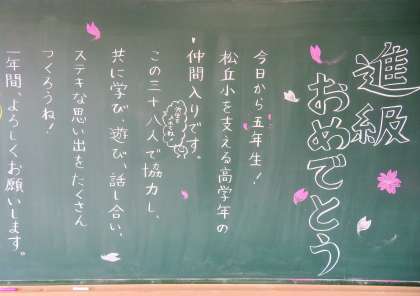 進級
おめでとう
今日から五年生!
松丘小を支える高学年の
仲間入りです。
この三十八人で協力し、
共に学び、遊び、話し合い、
ステキな思い出をたくさん
つくろうね!
一年間、よろしくお願いします。